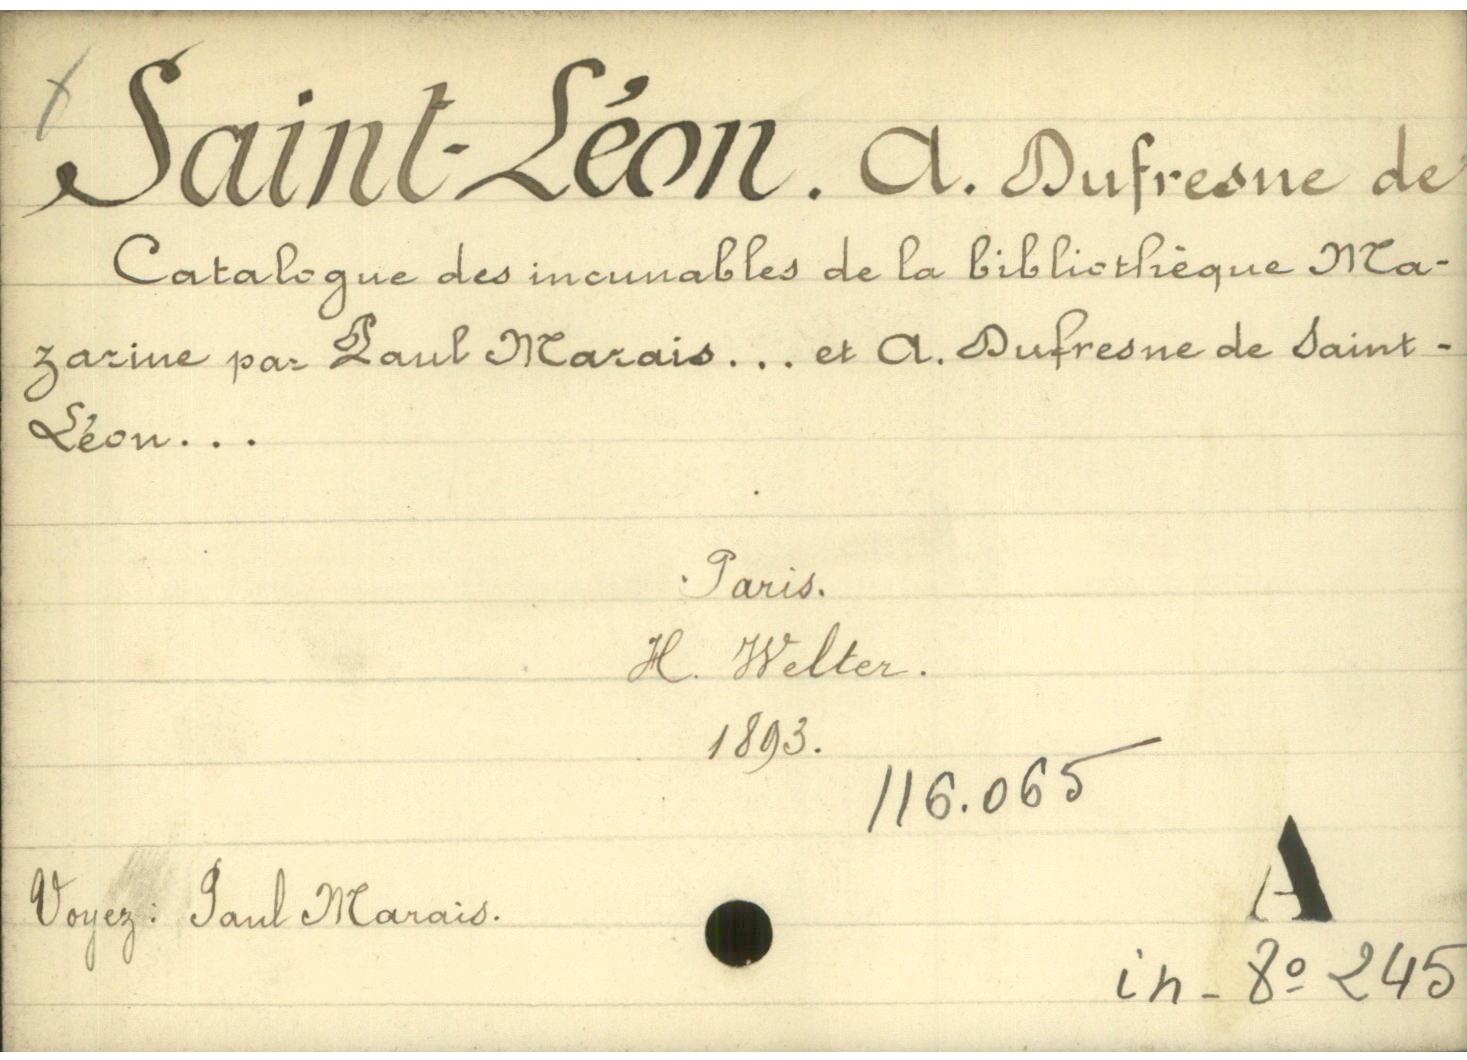 Saint-Léon. A. Dufresne de
Catalogue des incunables de la bibliothèque Ma-
zarine par Paul Marais... et A. Dufresne de Saint-
Léon...
Paris.
H. Welter.
1893.
116.065
Voyez: Paul Marais.
A
in-8º 245